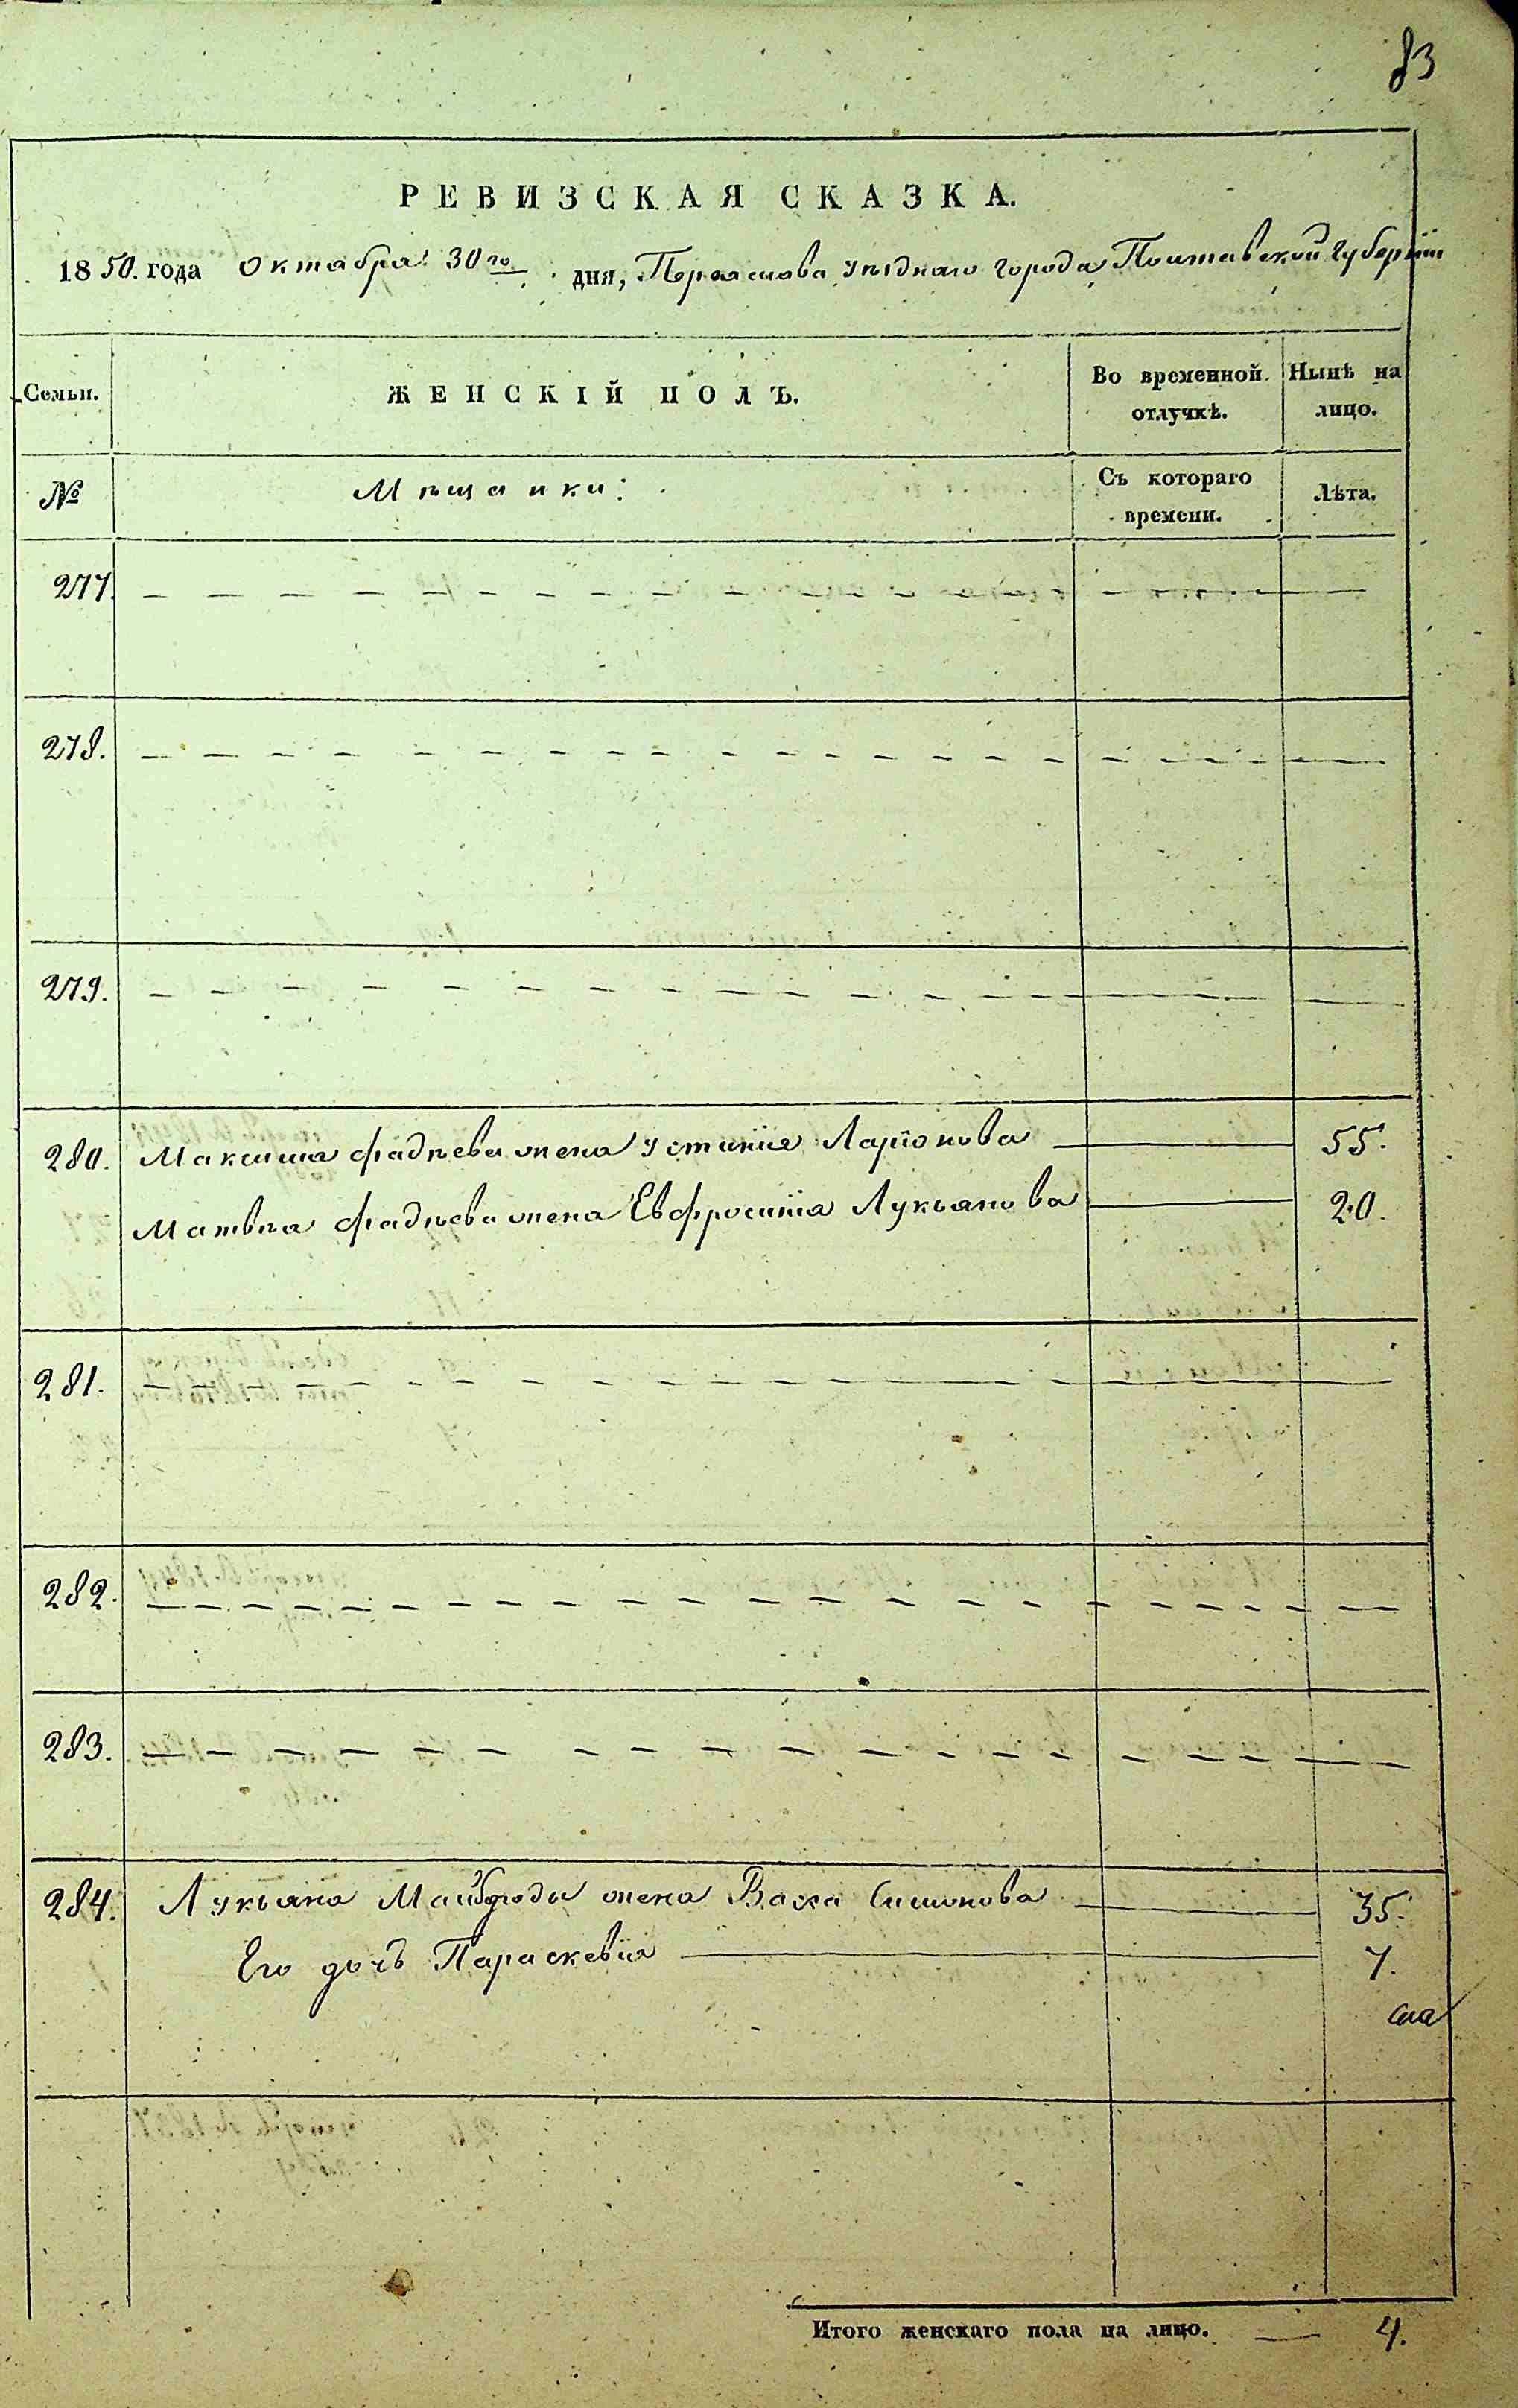 83
РЕВИЗСКАЯ СКАЗКА.
1850. года Октября 30го дня, Переяслова уѣзднаго города Полтавской губерніи
Семьи. ЖЕНСКІЙ ПОЛЪ. Во временной отлучкѣ. Нынѣ на лицо.
№ Мѣщанки: Съ котораго времени. Лѣта.
277.
278.
279.
280. Максима Фадѣева жена Устинія Ларіонова 55.
Матвѣя Фадѣева жена Евфросинія Лукьянова 20.
281.
282.
283.
284. Лукьяна Майбороды жена Васа Симонова 35.
Его дочь Параскевія 7.
Итого женскаго пола на лицо. 4.